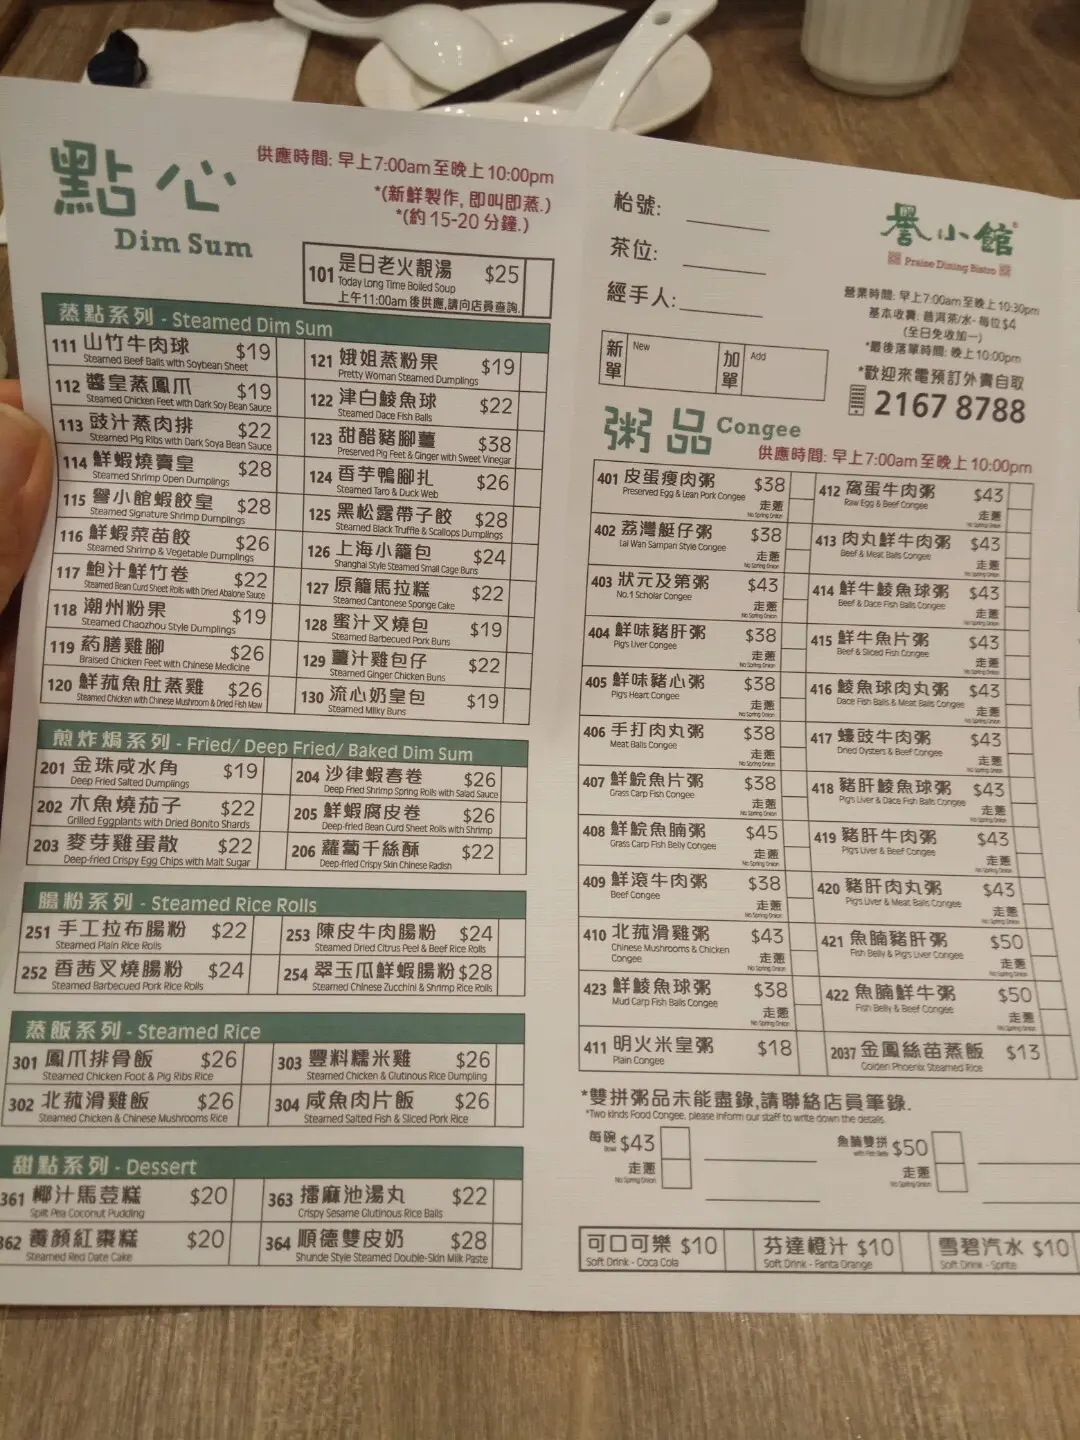 點心
Dim Sum
供應時間: 早上7:00am至晚上10:00pm
*(新鮮製作, 即叫即蒸.)
*(約15-20分鐘.)
101 是日老火靚湯 $25
Today Long Time Boiled Soup
上午11:00am後供應,請向店員查詢.
蒸點系列 - Steamed Dim Sum
111 山竹牛肉球 $19
Steamed Beef Balls with Soybean Sheet
112 醬皇蒸鳳爪 $19
Steamed Chicken Feet with Dark Soy Bean Sauce
113 豉汁蒸肉排 $22
Steamed Pig Ribs with Dark Soya Bean Sauce
114 鮮蝦燒賣皇 $28
Steamed Shrimp Open Dumplings
115 譽小館蝦餃皇 $28
Steamed Signature Shrimp Dumplings
116 鮮蝦菜苗餃 $26
Steamed Shrimp & Vegetable Dumplings
117 鮑汁鮮竹卷 $22
Steamed Bean Curd Sheet Rolls with Dried Abalone Sauce
118 潮州粉果 $19
Steamed Chaozhou Style Dumplings
119 药膳雞腳 $26
Braised Chicken Feet with Chinese Medicine
120 鮮菰魚肚蒸雞 $26
Steamed Chicken with Chinese Mushroom & Dried Fish Maw
121 娥姐蒸粉果 $19
Pretty Woman Steamed Dumplings
122 津白鯪魚球 $22
Steamed Dace Fish Balls
123 甜醋豬腳薑 $38
Preserved Pig Feet & Ginger with Sweet Vinegar
124 香芋鴨腳扎 $26
Steamed Taro & Duck Web
125 黑松露帶子餃 $28
Steamed Black Truffle & Scallops Dumplings
126 上海小籠包 $24
Shanghai Style Steamed Small Cage Buns
127 原籠馬拉糕 $22
Steamed Cantonese Sponge Cake
128 蜜汁叉燒包 $19
Steamed Barbecued Pork Buns
129 薑汁雞包仔 $22
Steamed Ginger Chicken Buns
130 流心奶皇包 $19
Steamed Milky Buns
煎炸焗系列 - Fried/ Deep Fried/ Baked Dim Sum
201 金珠咸水角 $19
Deep Fried Salted Dumplings
202 木魚燒茄子 $22
Grilled Eggplants with Dried Bonito Shards
203 麥芽雞蛋散 $22
Deep-fried Crispy Egg Chips with Malt Sugar
204 沙律蝦春卷 $26
Deep Fried Shrimp Spring Rolls with Salad Sauce
205 鮮蝦腐皮卷 $26
Deep-fried Bean Curd Sheet Rolls with Shrimp
206 蘿蔔千絲酥 $22
Deep-fried Crispy Skin Chinese Radish
腸粉系列 - Steamed Rice Rolls
251 手工拉布腸粉 $22
Steamed Plain Rice Rolls
252 香茜叉燒腸粉 $24
Steamed Barbecued Pork Rice Rolls
253 陳皮牛肉腸粉 $24
Steamed Dried Citrus Peel & Beef Rice Rolls
254 翠玉瓜鮮蝦腸粉 $28
Steamed Chinese Zucchini & Shrimp Rice Rolls
蒸飯系列 - Steamed Rice
301 鳳爪排骨飯 $26
Steamed Chicken Foot & Pig Ribs Rice
302 北菰滑雞飯 $26
Steamed Chicken & Chinese Mushrooms Rice
303 豐料糯米雞 $26
Steamed Chicken & Glutinous Rice Dumpling
304 咸魚肉片飯 $26
Steamed Salted Fish & Sliced Pork Rice
甜點系列 - Dessert
361 椰汁馬荳糕 $20
Split Pea Coconut Pudding
362 養顏紅棗糕 $20
Steamed Red Date Cake
363 擂麻池湯丸 $22
Crispy Sesame Glutinous Rice Balls
364 順德雙皮奶 $28
Shunde Style Steamed Double-Skin Milk Paste
枱號:
茶位:
經手人:
新單 New
加單 Add
譽小館®
Praise Dining Bistro
營業時間: 早上7:00am至晚上10:30pm
基本收費: 普洱茶/水- 每位$4
(全日免收加一)
*最後落單時間: 晚上10:00pm
*歡迎來電預訂外賣自取
2167 8788
粥品 Congee
供應時間: 早上7:00am至晚上10:00pm
401 皮蛋瘦肉粥 $38
Preserved Egg & Lean Pork Congee
走蔥
No Spring Onion
402 荔灣艇仔粥 $38
Lai Wan Sampan Style Congee
走蔥
No Spring Onion
403 狀元及第粥 $43
No.1 Scholar Congee
走蔥
No Spring Onion
404 鮮味豬肝粥 $38
Pig's Liver Congee
走蔥
No Spring Onion
405 鮮味豬心粥 $38
Pig's Heart Congee
走蔥
No Spring Onion
406 手打肉丸粥 $38
Meat Balls Congee
走蔥
No Spring Onion
407 鮮鯇魚片粥 $38
Grass Carp Fish Congee
走蔥
No Spring Onion
408 鮮鯇魚腩粥 $45
Grass Carp Fish Belly Congee
走蔥
No Spring Onion
409 鮮滾牛肉粥 $38
Beef Congee
走蔥
No Spring Onion
410 北菰滑雞粥 $43
Chinese Mushrooms & Chicken
Congee
走蔥
No Spring Onion
423 鮮鯪魚球粥 $38
Mud Carp Fish Balls Congee
走蔥
No Spring Onion
411 明火米皇粥 $18
Plain Congee
412 窩蛋牛肉粥 $43
Raw Egg & Beef Congee
走蔥
No Spring Onion
413 肉丸鮮牛肉粥 $43
Beef & Meat Balls Congee
走蔥
No Spring Onion
414 鮮牛鯪魚球粥 $43
Beef & Dace Fish Balls Congee
走蔥
No Spring Onion
415 鮮牛魚片粥 $43
Beef & Sliced Fish Congee
走蔥
No Spring Onion
416 鯪魚球肉丸粥 $43
Dace Fish Balls & Meat Balls Congee
走蔥
No Spring Onion
417 蠔豉牛肉粥 $43
Dried Oysters & Beef Congee
走蔥
No Spring Onion
418 豬肝鯪魚球粥 $43
Pig's Liver & Dace Fish Balls Congee
走蔥
No Spring Onion
419 豬肝牛肉粥 $43
Pig's Liver & Beef Congee
走蔥
No Spring Onion
420 豬肝肉丸粥 $43
Pig's Liver & Meat Balls Congee
走蔥
No Spring Onion
421 魚腩豬肝粥 $50
Fish Belly & Pig's Liver Congee
走蔥
No Spring Onion
422 魚腩鮮牛粥 $50
Fish Belly & Beef Congee
走蔥
No Spring Onion
2037 金鳳絲苗蒸飯 $13
Golden Phoenix Steamed Rice
*雙拼粥品未能盡錄,請聯絡店員筆錄.
*Two kinds Food Congee, please inform our staff to write down the details.
每碗 $43
Bowl
走蔥
No Spring Onion
魚腩雙拼 $50
with Fish Belly
走蔥
No Spring Onion
可口可樂 $10
Soft Drink - Coca Cola
芬達橙汁 $10
Soft Drink - Fanta Orange
雪碧汽水 $10
Soft Drink - Sprite